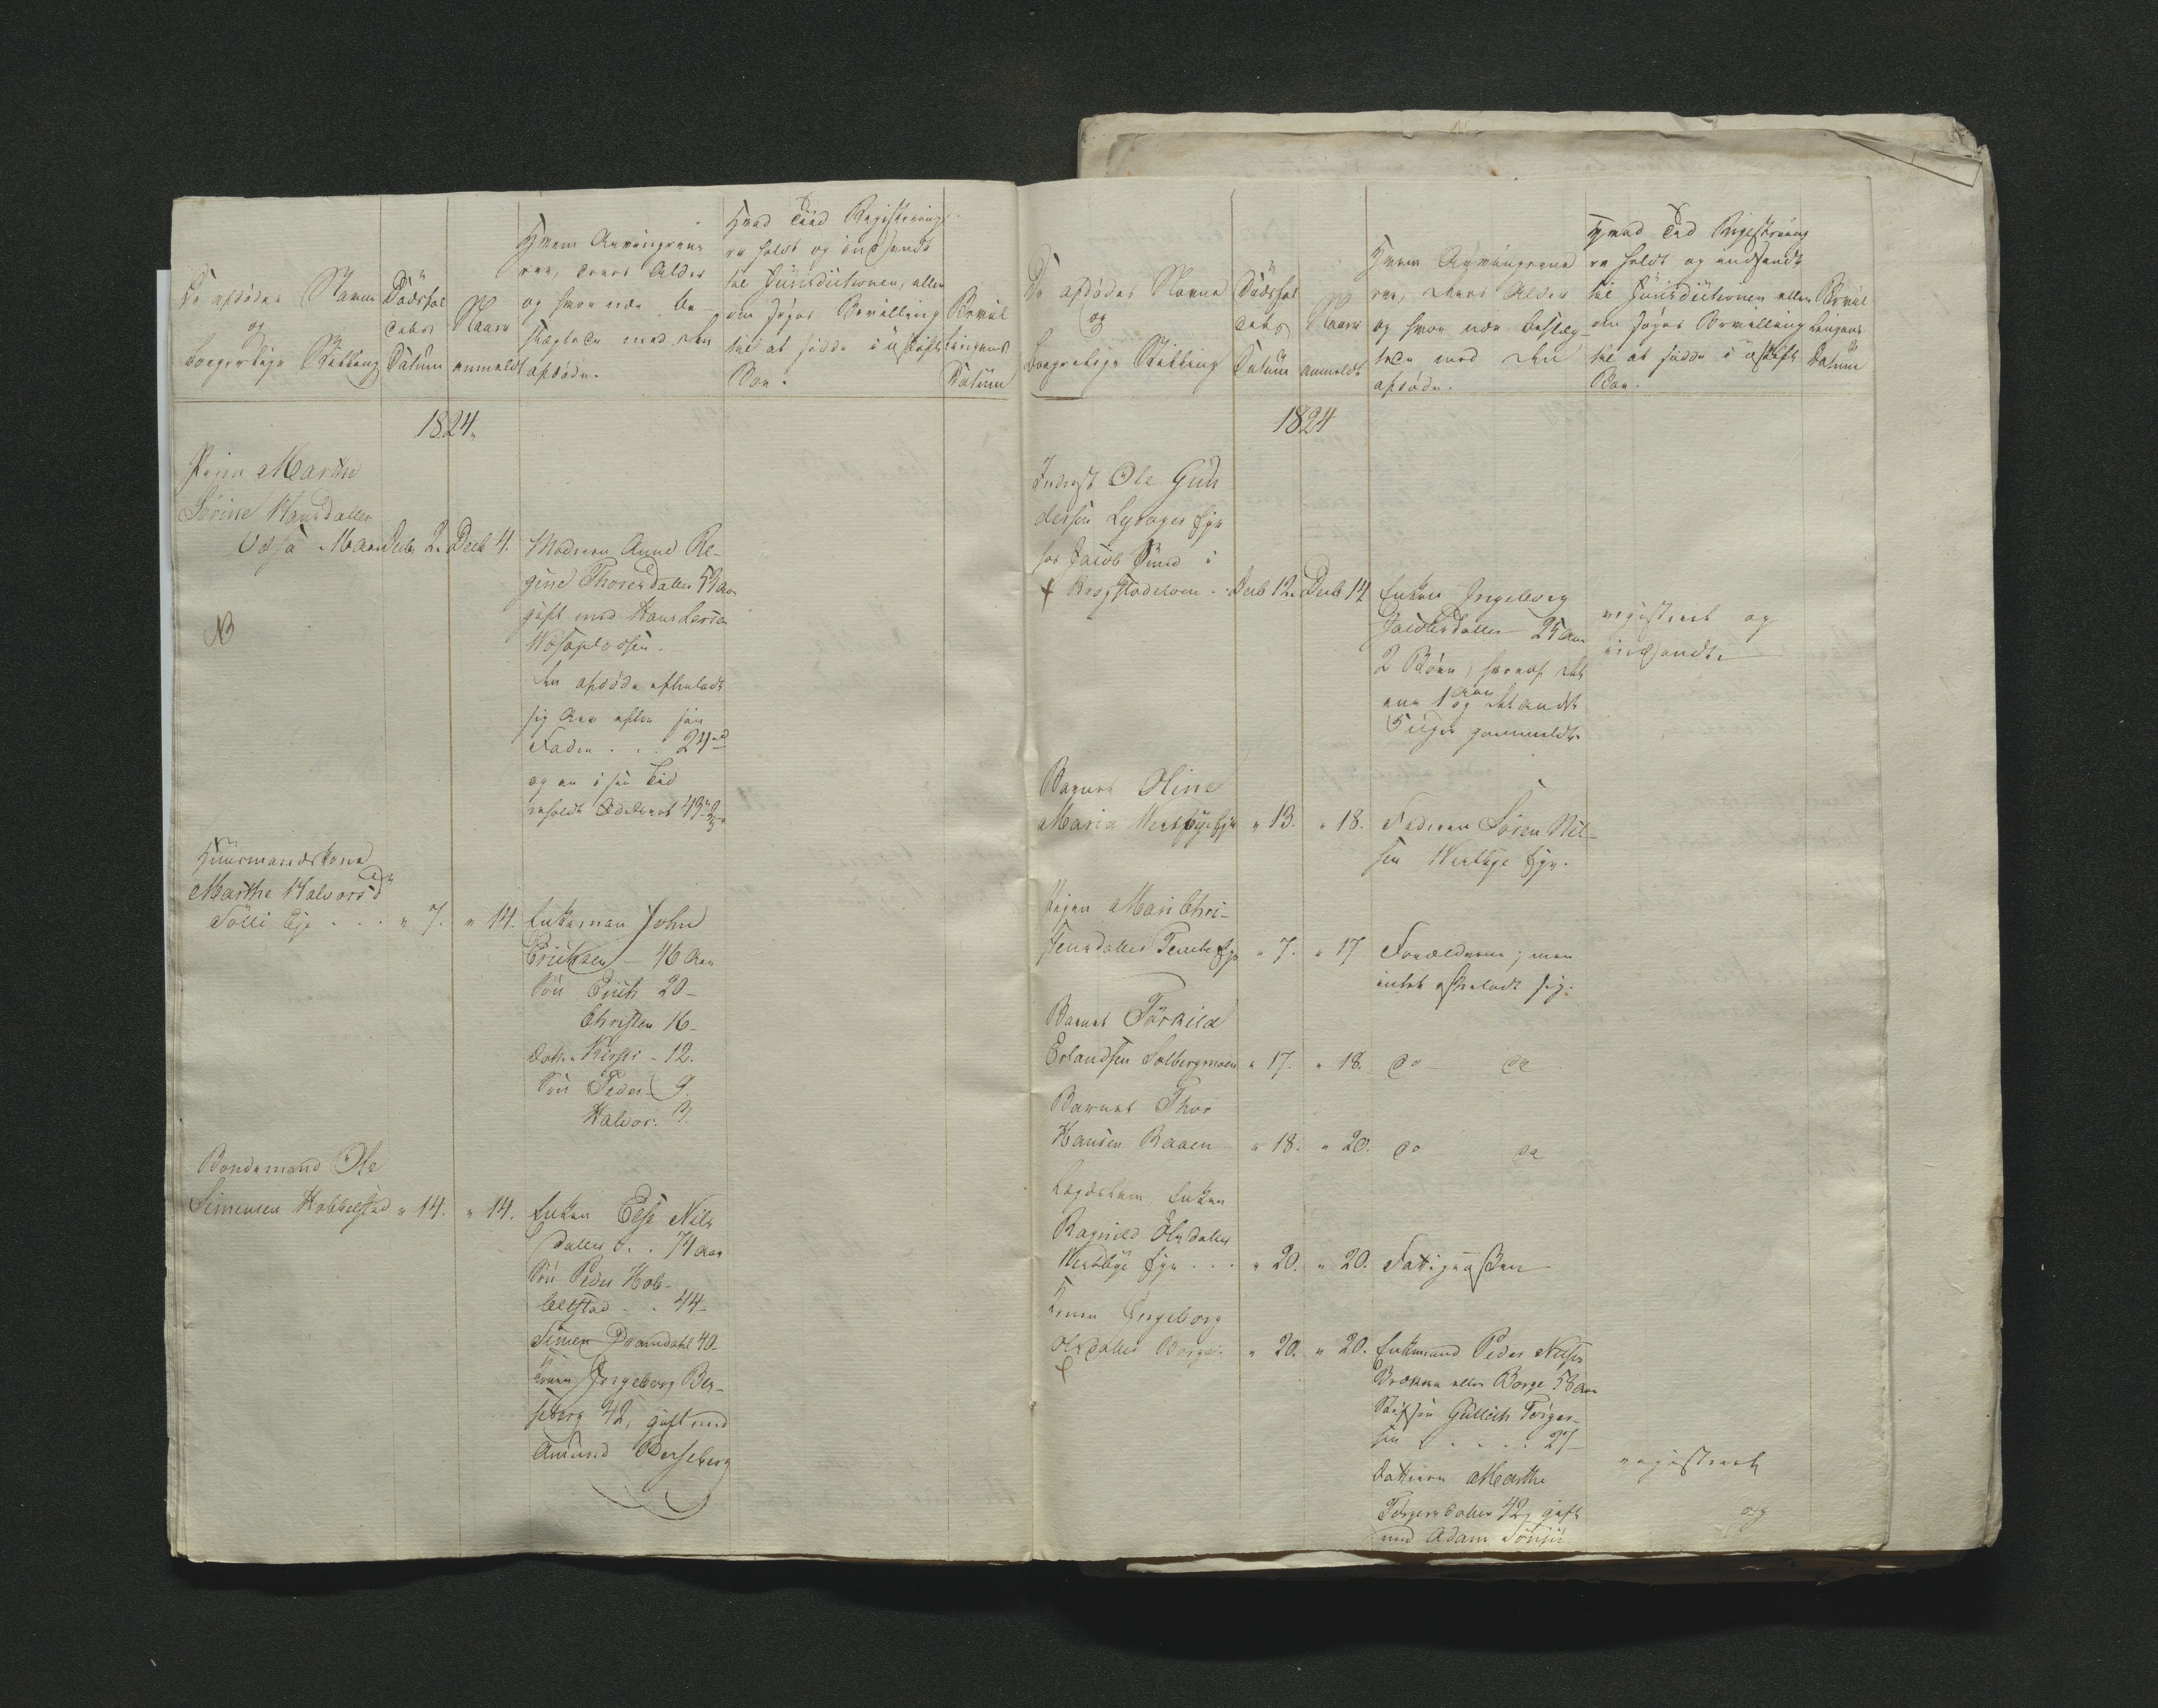 De afdødes Navne
og
borgerlige Stilling
Dødsfal
dets
Datum
Naar
anmeldt
Hvem Arvingerne
ere, deres Alder
og hvor nær be-
slægtede med den
afdøde.
Hvad Tiid Registrering
er holdt og indsendt
til Jurisdictionen, eller
om søges Bevilling
til at sidde i uskiftet
Boe.
Bevil
lingens
Datum
1824.
Pigen Marthe
Sørine Hansdatter
Decbr 2. Decb 4.
Moderen Anne Re-
gine Thoresdatter 53 Aar
gift med Hans Larsen
NB
den afdøde efterlod
sig Arv efter sin
Fader . . . 24
og en i sin Tid
Huusmandskone
Marthe Halvorsd
Tølli Eje . . " 7. " 14.
Enkeman John
Erichsen - 46 Aar
Søn Erich 20 -
Christen 16 -
Datter Kirsti - 12.
Søn Peder 9.
Halvor. 3.
Bondemand Ole
Simensen Hobbelstad " 14. " 14.
Enken Else Nils
datter . . 74 Aar
Søn Peder Hob-
belstad . . 44 -
Simen Dramdahl 40 -
Ingeborg Ber-
seberg 42, gift med
Amund Berseberg
De afdødes Navne
og
borgerlige Stilling
Dødsfal
dets
Datum
Naar
anmeldt
Hvem Arvingerne
ere, deres Alder
og hvor nær beslæg-
tede med den
afdøde.
Hvad Tid Registrering
er holdt og indsendt
til Jurisdictionen eller
om søges Bevilling
til at sidde i uskiftet
Boe.
Bevil
lingens
Datum
1824
Inderst Ole Gun
dersen
hos Jacob Sund i
Decb 12. Decb 14
Enken Ingeborg
Jacobsdatter - 25 Aar
2 Børn, hvoraf det
ene 1 Aar og det andet
5 Uger gammelt.
registreret og
indsendt
Barnet Oline
Maria Vestbye Eje " 13. " 18.
Faderen Søren Nil-
sen Vestbye Eje.
Pigen Mari Chri-
stensdatter " 7. " 17
Forældrene; men
intet efterladt sig.
Barnet Torkild
Erlandsen Solbergmoen " 17. " 18. do - do
Barnet Thor
Hansen Raaen " 18. " 20. do do
Lægdslem Enken
Ragnild Olsdatter
Vestbye Eje . . . " 20. " 20. Fattigvæsen
Konen Ingeborg
Olsdatter Borge. " 20. " 20.
Enkemand Peder Nilsen
Brækken eller Borge 58 Aar
Stifsøn Gulbech Torger-
sen . . . . . 27 -
Datteren Marthe
Torgersdatter 42, gift
med Adam
registreret
og